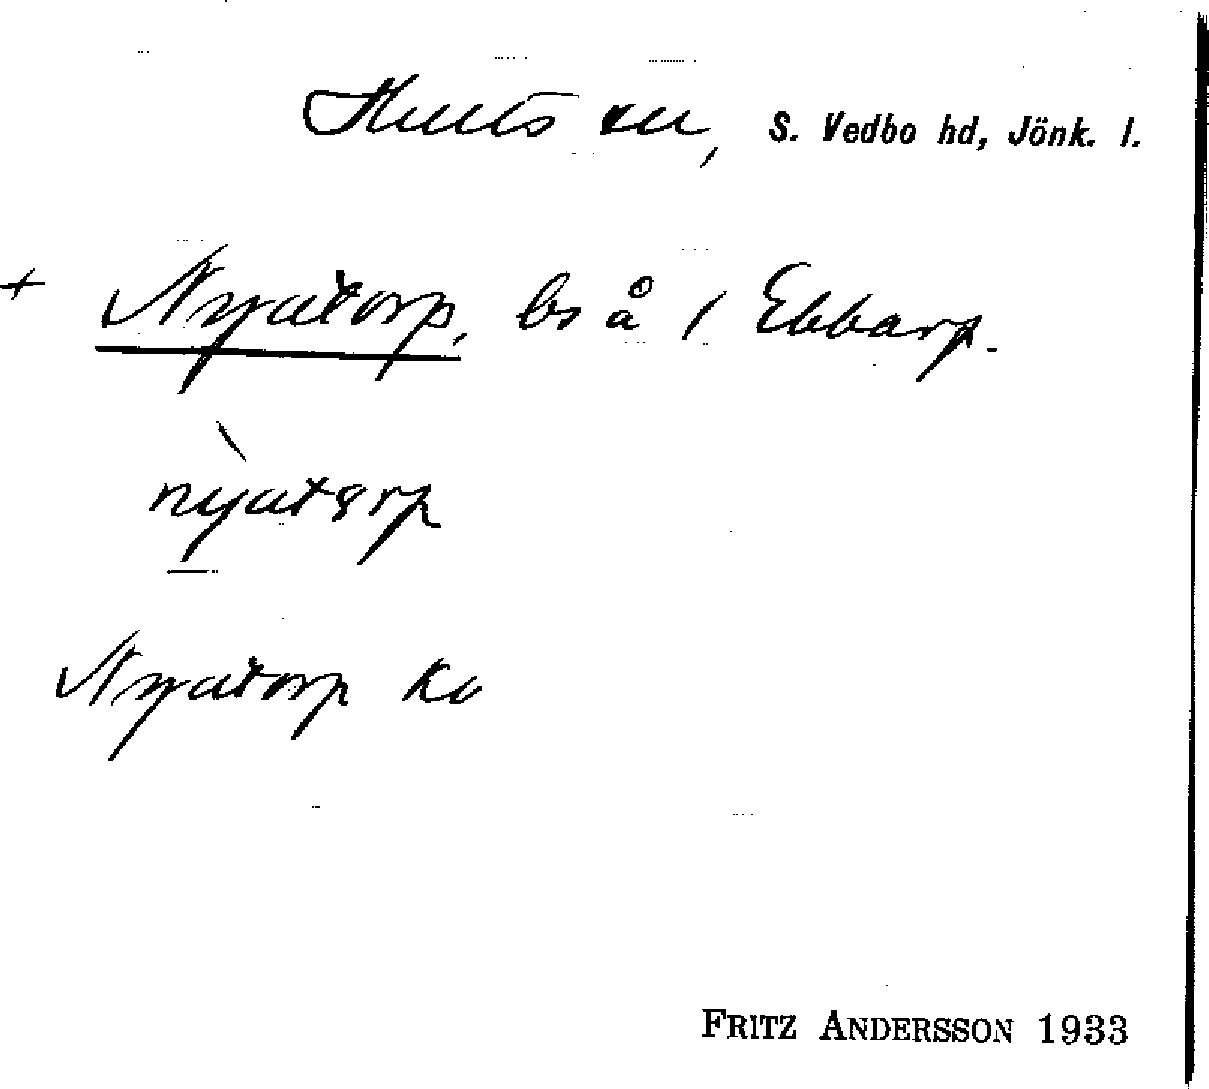 Hults sn, S. Vedbo hd, Jönk. l.
+ Nyatorp, bs å / Ebbarp.
nỳatorp
Nyatorp Ka
FRITZ ANDERSSON 1933